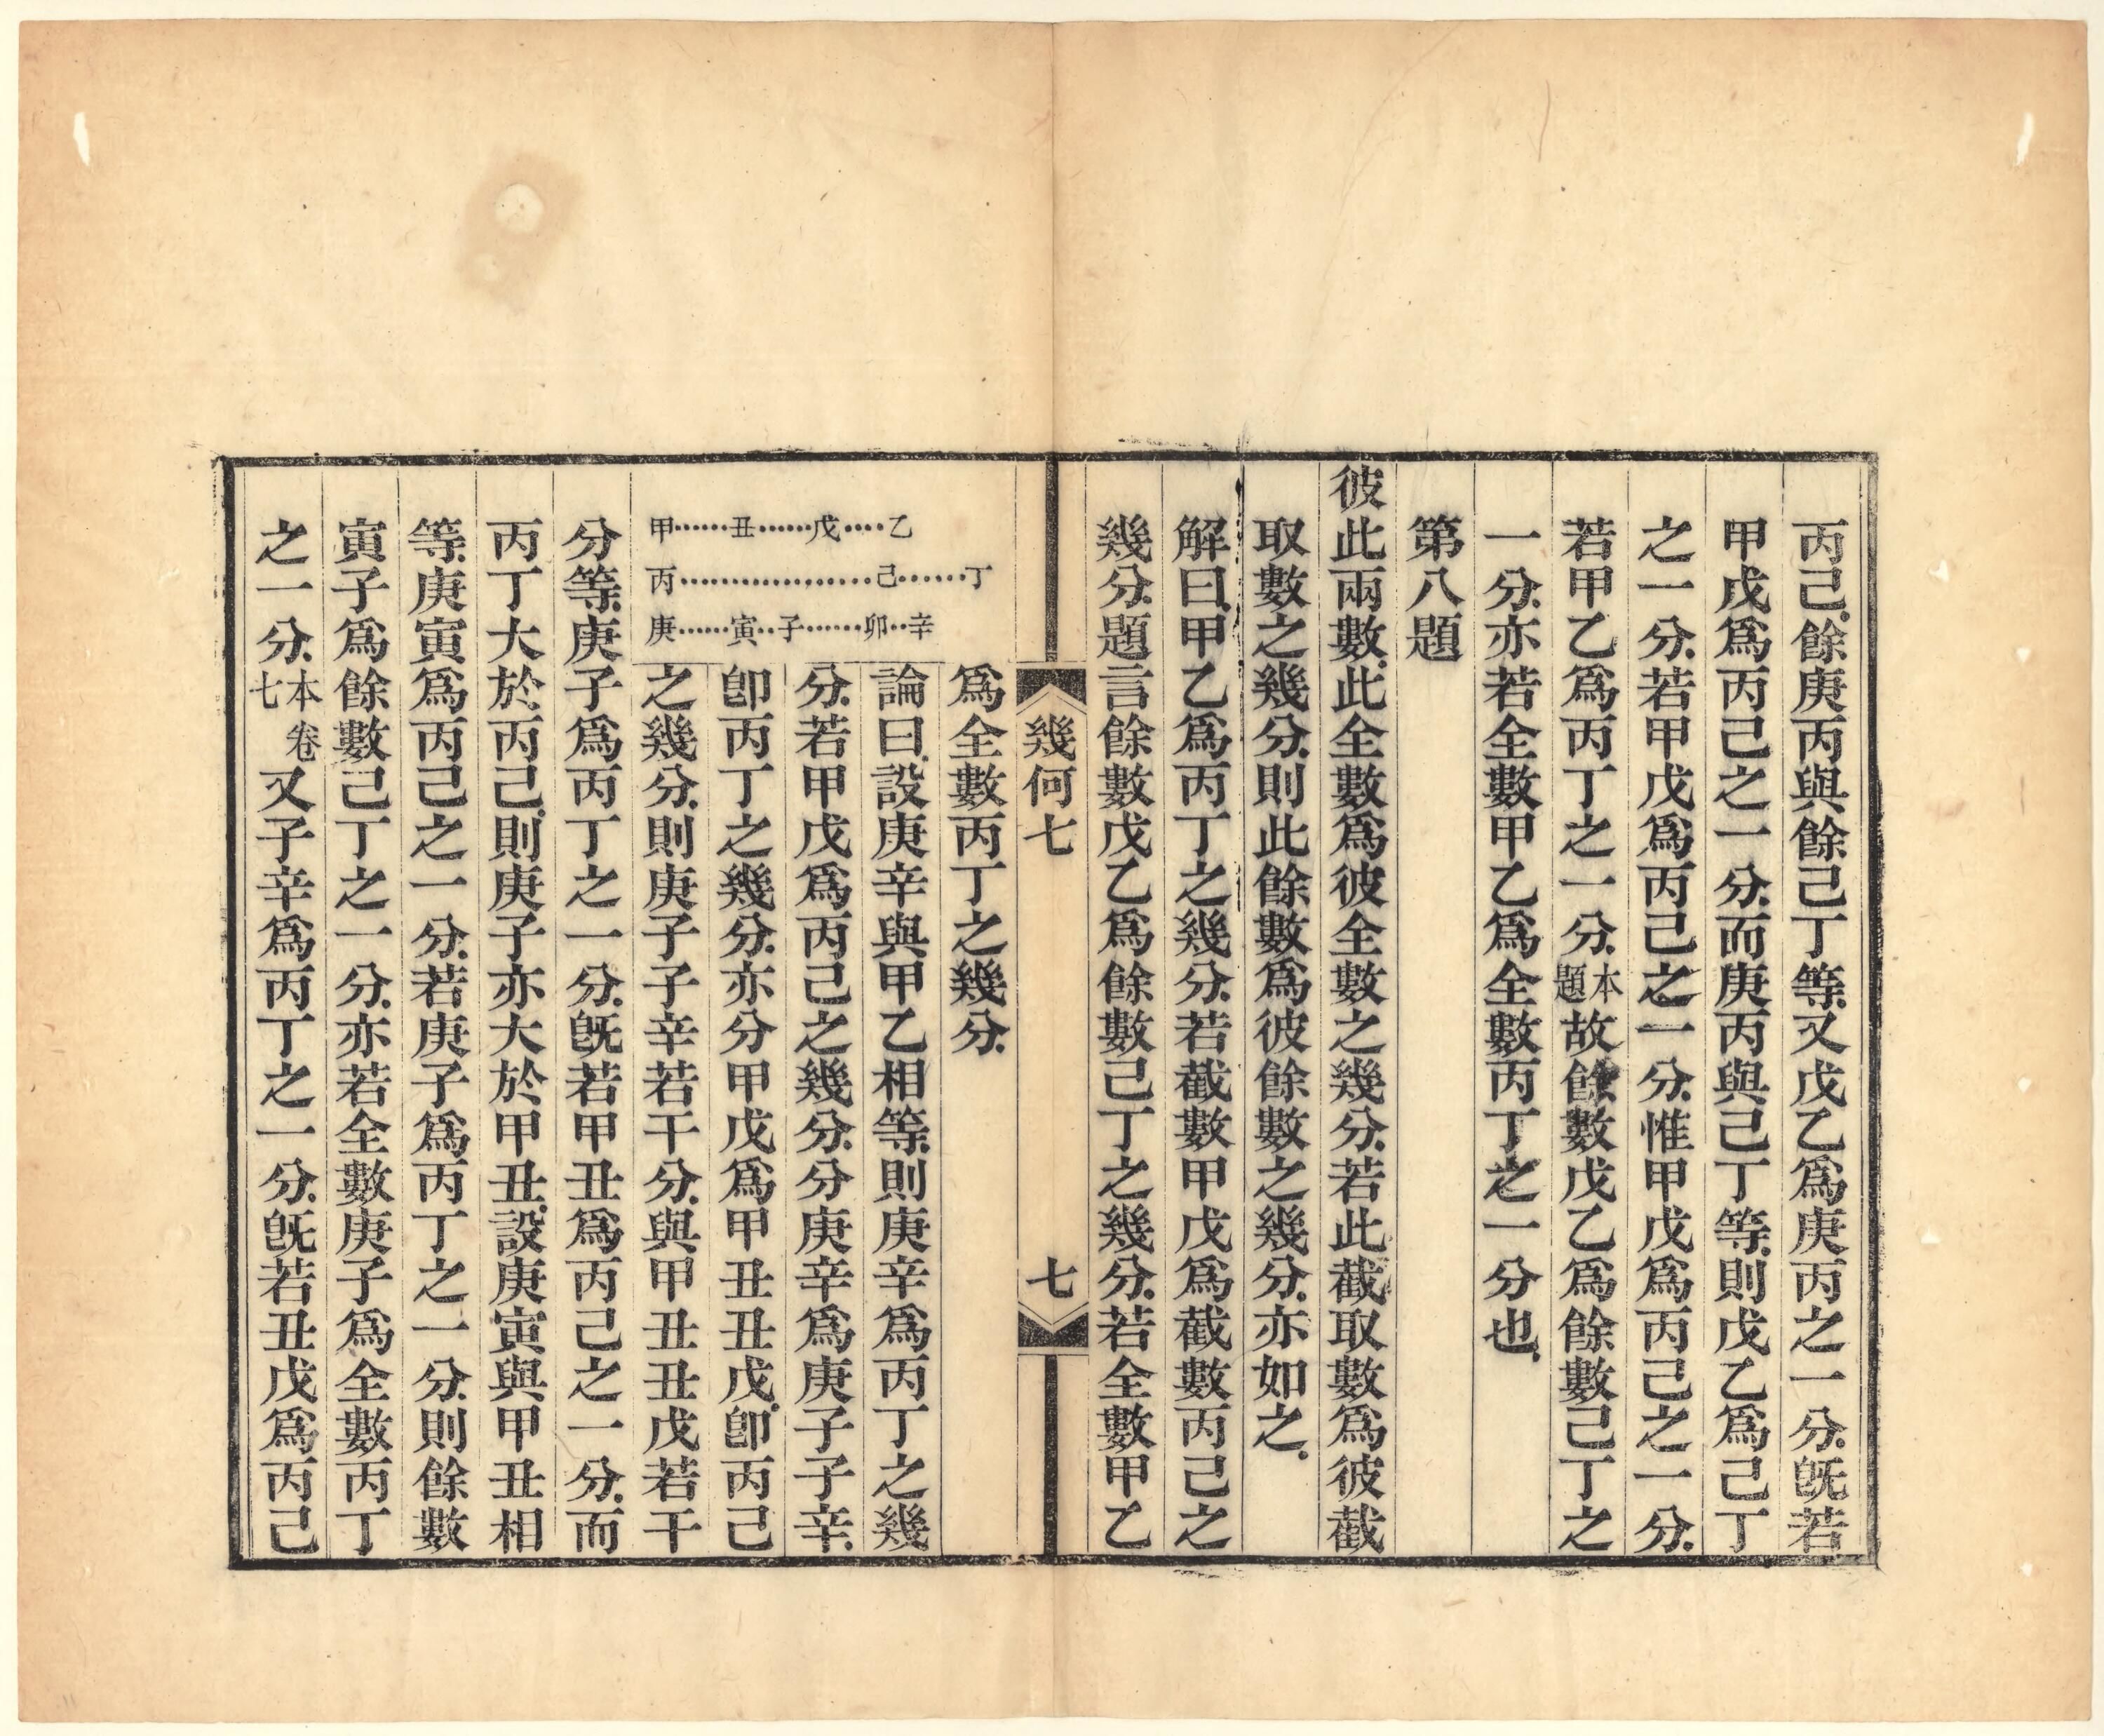 丙己.餘庚丙與餘己丁等.又戊乙爲庚丙之一分.旣若
甲戊爲丙己之一分.而庚丙與己丁等.則戊乙爲己丁
之一分.若甲戊爲丙己之一分.惟甲戊爲丙己之一分.
若甲乙爲丙丁之一分.本題故餘數戊乙爲餘數己丁之
一分.亦若全數甲乙爲全數丙丁之一分也.
第八題
彼此兩數.此全數爲彼全數之幾分.若此截取數爲彼截
取數之幾分.則此餘數爲彼餘數之幾分.亦如之.
解曰.甲乙爲丙丁之幾分.若截數甲戊爲截數丙己之
幾分.題言餘數戊乙爲餘數己丁之幾分.若全數甲乙
幾何七 七
爲全數丙丁之幾分.
甲······丑······戊····乙
丙···················己······丁
庚······寅··子······卯··辛
論曰.設庚辛與甲乙相等.則庚辛爲丙丁之幾
分.若甲戊爲丙己之幾分.分庚辛爲庚子子辛.
卽丙丁之幾分.亦分甲戊爲甲丑丑戊.卽丙己
之幾分.則庚子子辛若干分.與甲丑丑戊若干
分等.庚子爲丙丁之一分.旣若甲丑爲丙己之一分.而
丙丁大於丙己.則庚子亦大於甲丑.設庚寅與甲丑相
等.庚寅爲丙己之一分.若庚子爲丙丁之一分.則餘數
寅子爲餘數己丁之一分.亦若全數庚子爲全數丙丁
之一分.本卷七又子辛爲丙丁之一分.旣若丑戊爲丙己